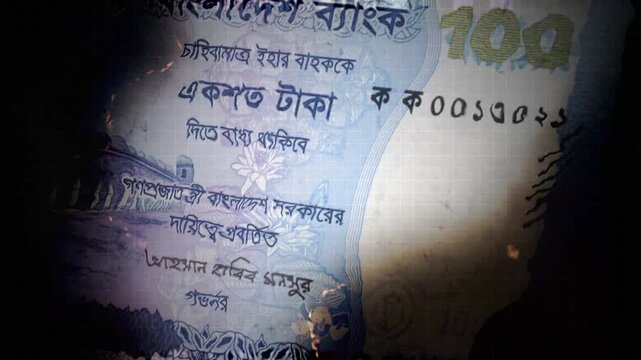 বাংলাদেশ ব্যাংক
100
চাহিবামাত্র ইহার বাহককে
একশত টাকা
ক ক ००১৩০২১
দিতে বাধ্য থাকিবে
গণপ্রজাতন্ত্রী বাংলাদেশ সরকারের
দায়িত্বে প্রবর্তিত
আহসান হাবিব মনসুর
গভর্নর
10